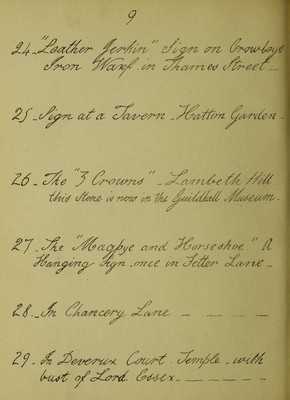 9
24_ "Leather Jerkin" Sign on Crowleys
Iron Warf. in Thames Street_
25_ Sign at a Tavern _ Hatton Garden_
26_ The "3 Crowns" _ Lambeth Hill
this Stone is now in the Guildhall Museum.
27_ The "Magpye and Horseshoe" A
Hanging Sign once in Fetter Lane_
28._ In Chancery Lane _ _ _ _
29_ In Deverux Court. Temple _ with
bust of Lord Essex._ _ _ _ _ _